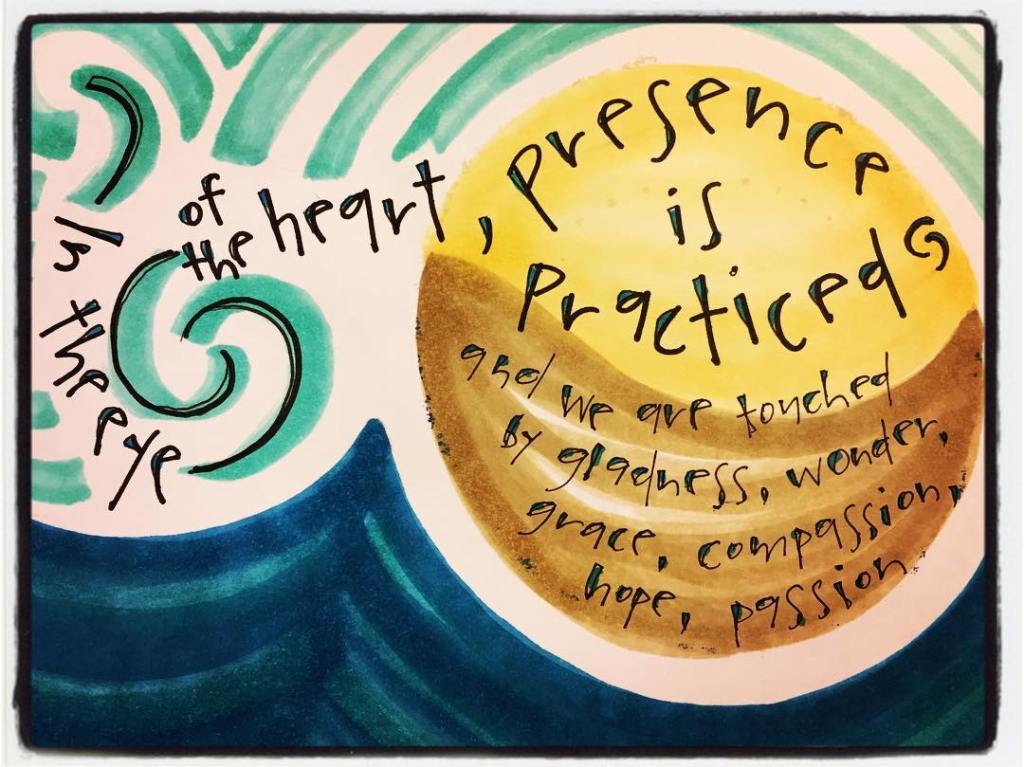 In the eye
of
the heart, presence
is
practiced
and we are touched
by gladness, wonder,
grace, compassion,
hope, passion